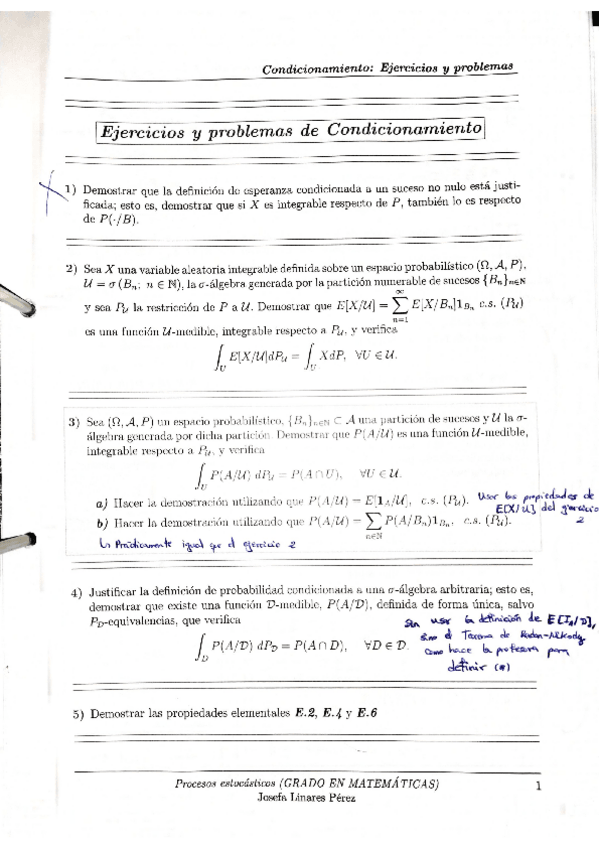 Condicionamiento: Ejercicios y problemas
Ejercicios y problemas de Condicionamiento
1) Demostrar que la definición de esperanza condicionada a un suceso no nulo está justi-
ficada; esto es, demostrar que si X es integrable respecto de P, también lo es respecto
de P(·/B).
2) Sea X una variable aleatoria integrable definida sobre un espacio probabilístico (Ω, A, P),
U = σ (Bₙ; n ∈ ℕ), la σ-álgebra generada por la partición numerable de sucesos {Bₙ}ₙ∈ℕ
y sea P_U la restricción de P a U. Demostrar que E[X/U] = ∑_{n=1}^{∞} E[X/Bₙ]1_{Bₙ} c.s. (P_U)
es una función U-medible, integrable respecto a P_U, y verifica
∫_U E[X/U]dP_U = ∫_U XdP, ∀U ∈ U.
3) Sea (Ω, A, P) un espacio probabilístico, {Bₙ}ₙ∈ℕ ⊂ A una partición de sucesos y U la σ-
álgebra generada por dicha partición. Demostrar que P(A/U) es una función U-medible,
integrable respecto a P_U, y verifica
∫_U P(A/U) dP_U = P(A ∩ U), ∀U ∈ U.
a) Hacer la demostración utilizando que P(A/U) = E[1_A/U], c.s. (P_U). Usar las propiedades de
E[X/U] del ejercicio 2
b) Hacer la demostración utilizando que P(A/U) = ∑_{n∈ℕ} P(A/Bₙ)1_{Bₙ}, c.s. (P_U).
↳ Prácticamente igual que el ejercicio 2
4) Justificar la definición de probabilidad condicionada a una σ-álgebra arbitraria; esto es,
demostrar que existe una función D-medible, P(A/D), definida de forma única, salvo
P_D-equivalencias, que verifica
∫_D P(A/D) dP_D = P(A ∩ D), ∀D ∈ D.
sin usar la definición de E[I_A/D],
sino el Teorema de Radon-Nikodym
como hace la profesora para
definir (*)
5) Demostrar las propiedades elementales E.2, E.4 y E.6
Procesos estocásticos (GRADO EN MATEMÁTICAS)
1
Josefa Linares Pérez